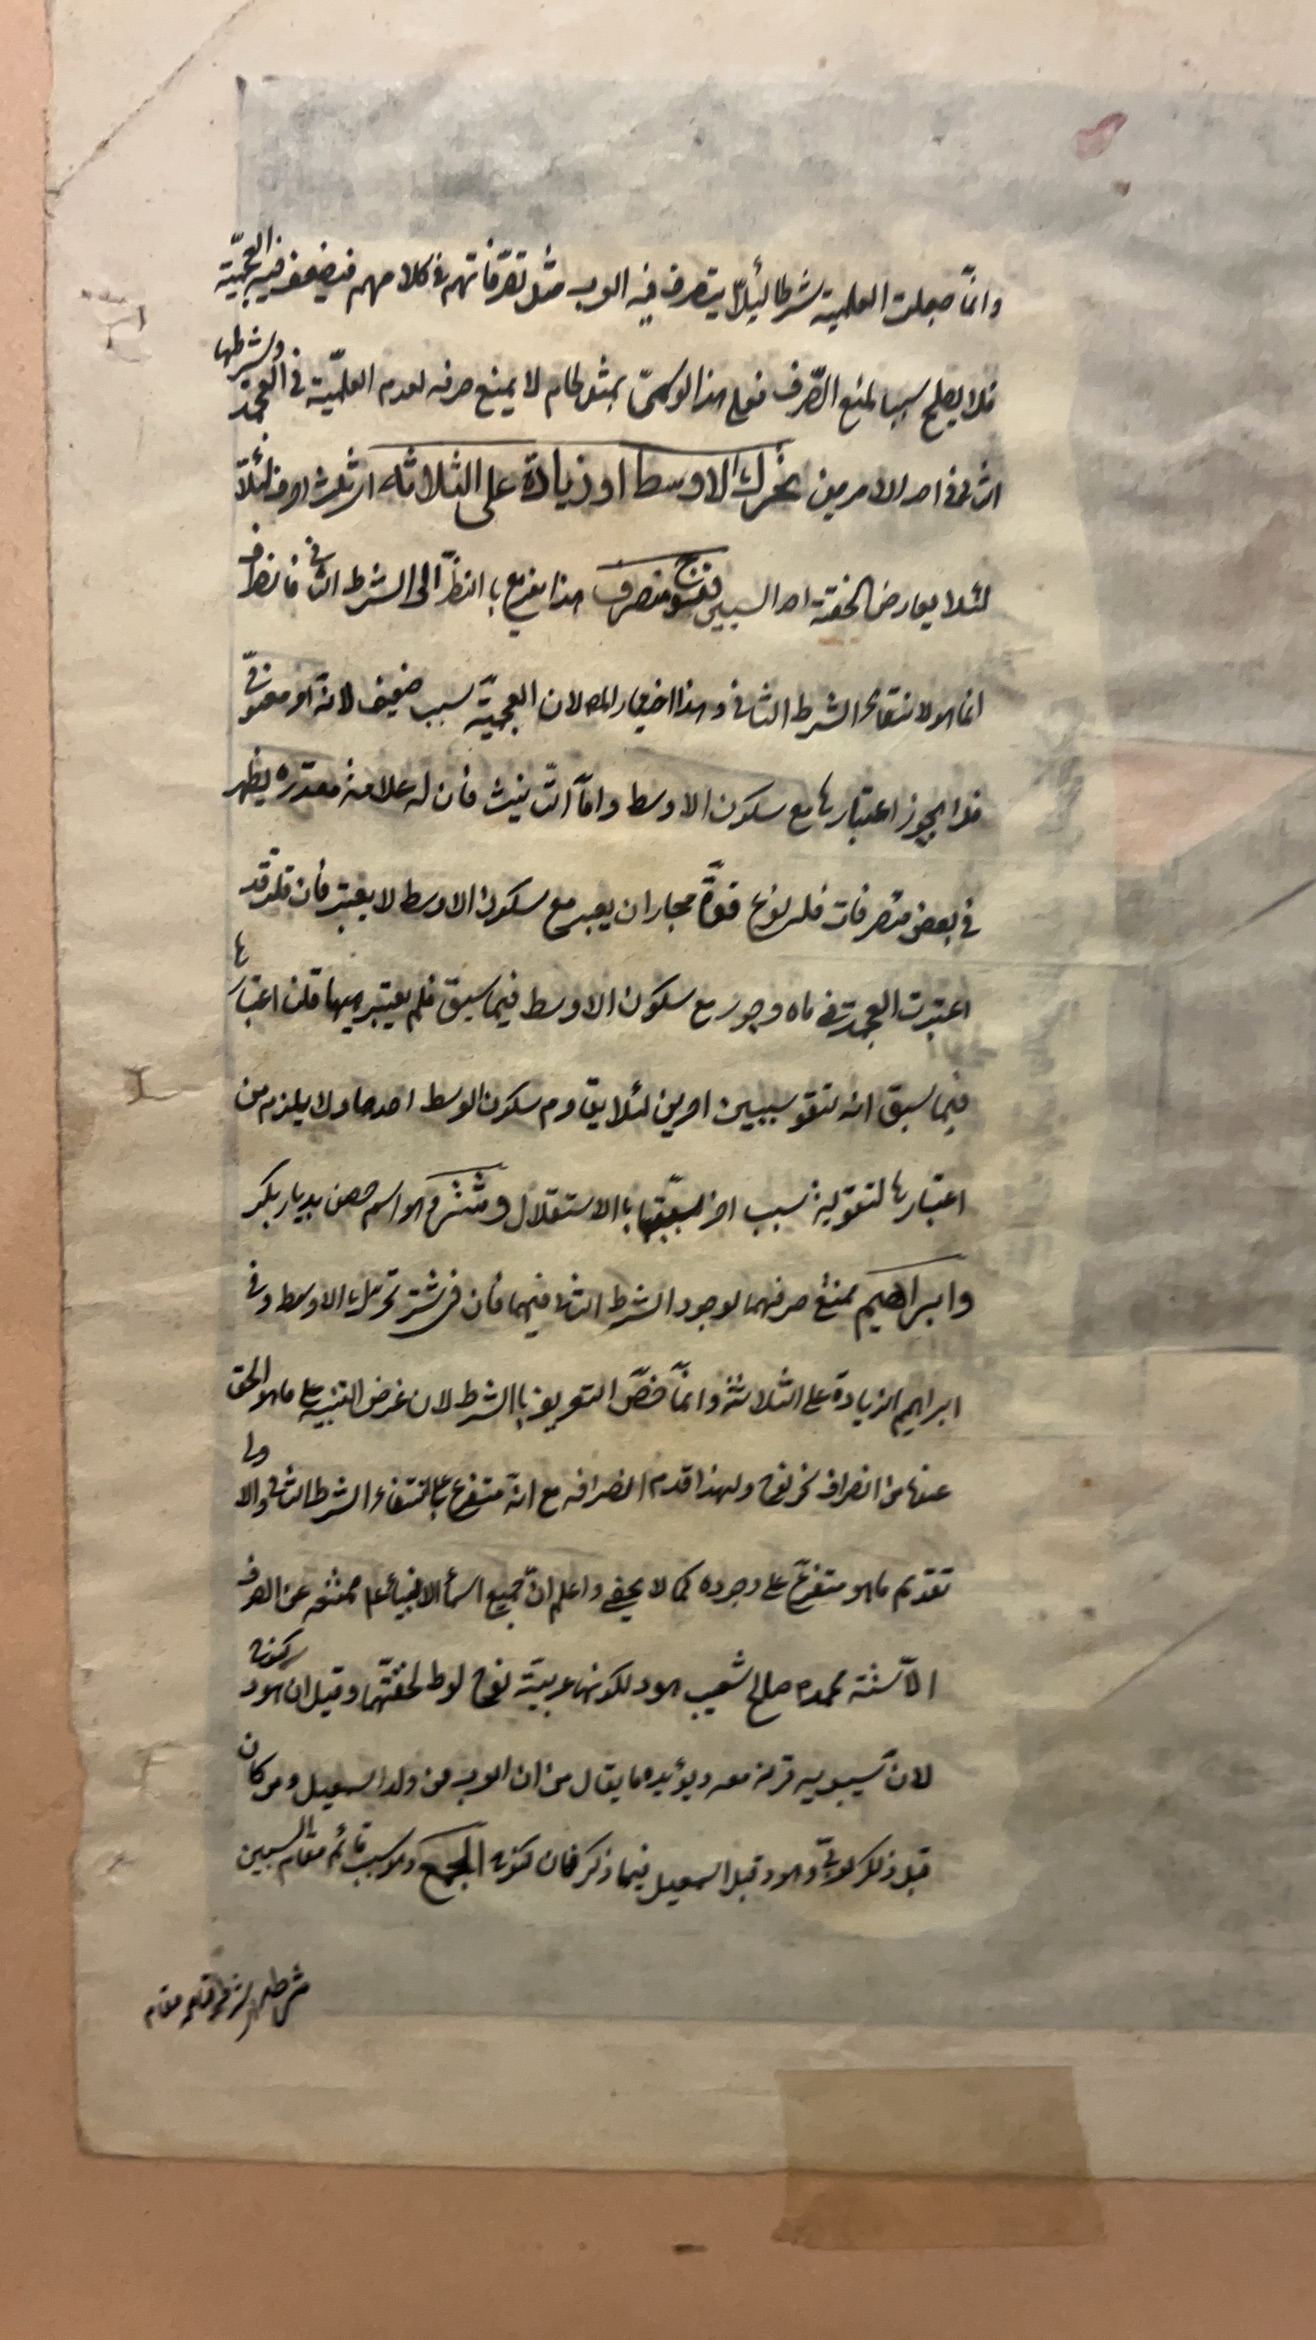 وانما جعلت العلمية شرطا لئلا يتصرف فيه العرب مثل تصرفاتهم في كلامهم فيضعف فيه العجمية
فلا يصلح سببا لمنع الصرف فعلى هذا لو سمي بمثل لجام لا يمنع صرفه لعدم العلمية في العجمة وشرطها
الثاني احد الامرين تحرك الاوسط او زيادة على الثلاثة اي ثلاثة احرف لئلا
لئلا يعارض الخفة احد السببين فنوح منصرف هذا تفريع بالنظر الى الشرط الثاني فانصراف
انما هو لانتفاء الشرط الثاني وهذا اختيار المص لان العجمية سبب ضعيف لانه امر معنوي
فلا يجوز اعتبارها مع سكون الاوسط واما التانيث فان له علامة مقدرة يظهر
في بعض تصرفات فله نوع قوة فجاز ان يعتبر مع سكون الاوسط لا يعتبر فان قلت قد
اعتبرت العجمة في ماه وجور مع سكون الاوسط فيما سبق فلم يعتبر ههنا قلنا اعتبارها
فيما سبق انه لتقوية سببين اخرين لئلا يقاوم سكون الوسط احدهما ولا يلزم من
اعتبارها لتقوية سبب اخر سببيتها بالاستقلال وشتر وهو اسم حصن بديار بكر
وابراهيم ممتنع صرفهما لوجود الشرط الثاني فيهما فان في شتر تحرك الاوسط وفي
ابراهيم الزيادة على الثلاثة وانما خص التفريع بالشرط لان غرض التنبيه على ما هو الحق
عنده من انصراف نحو نوح ولهذا قدم انصرافه مع انه متفرع على انتفاء الشرط الثاني والاولى
تقديم ما هو متفرع على وجوده كما لا يخفى واعلم ان جميع اسماء الانبياء عم ممتنعة عن الصرف
الا ستة محمد صالح شعيب هود لكونها عربية نوح لوط لخفتهما وقيل ان هود كنوح
لان سيبويه قرنه معه ويؤيده ما يقال من ان العرب من ولد اسمعيل ومن كان
قبل ذلك ليس بعربي وهود قبل اسمعيل فيما ذكر فكان كنوح الجمع وهو سبب قائم مقام السببين
شرطه